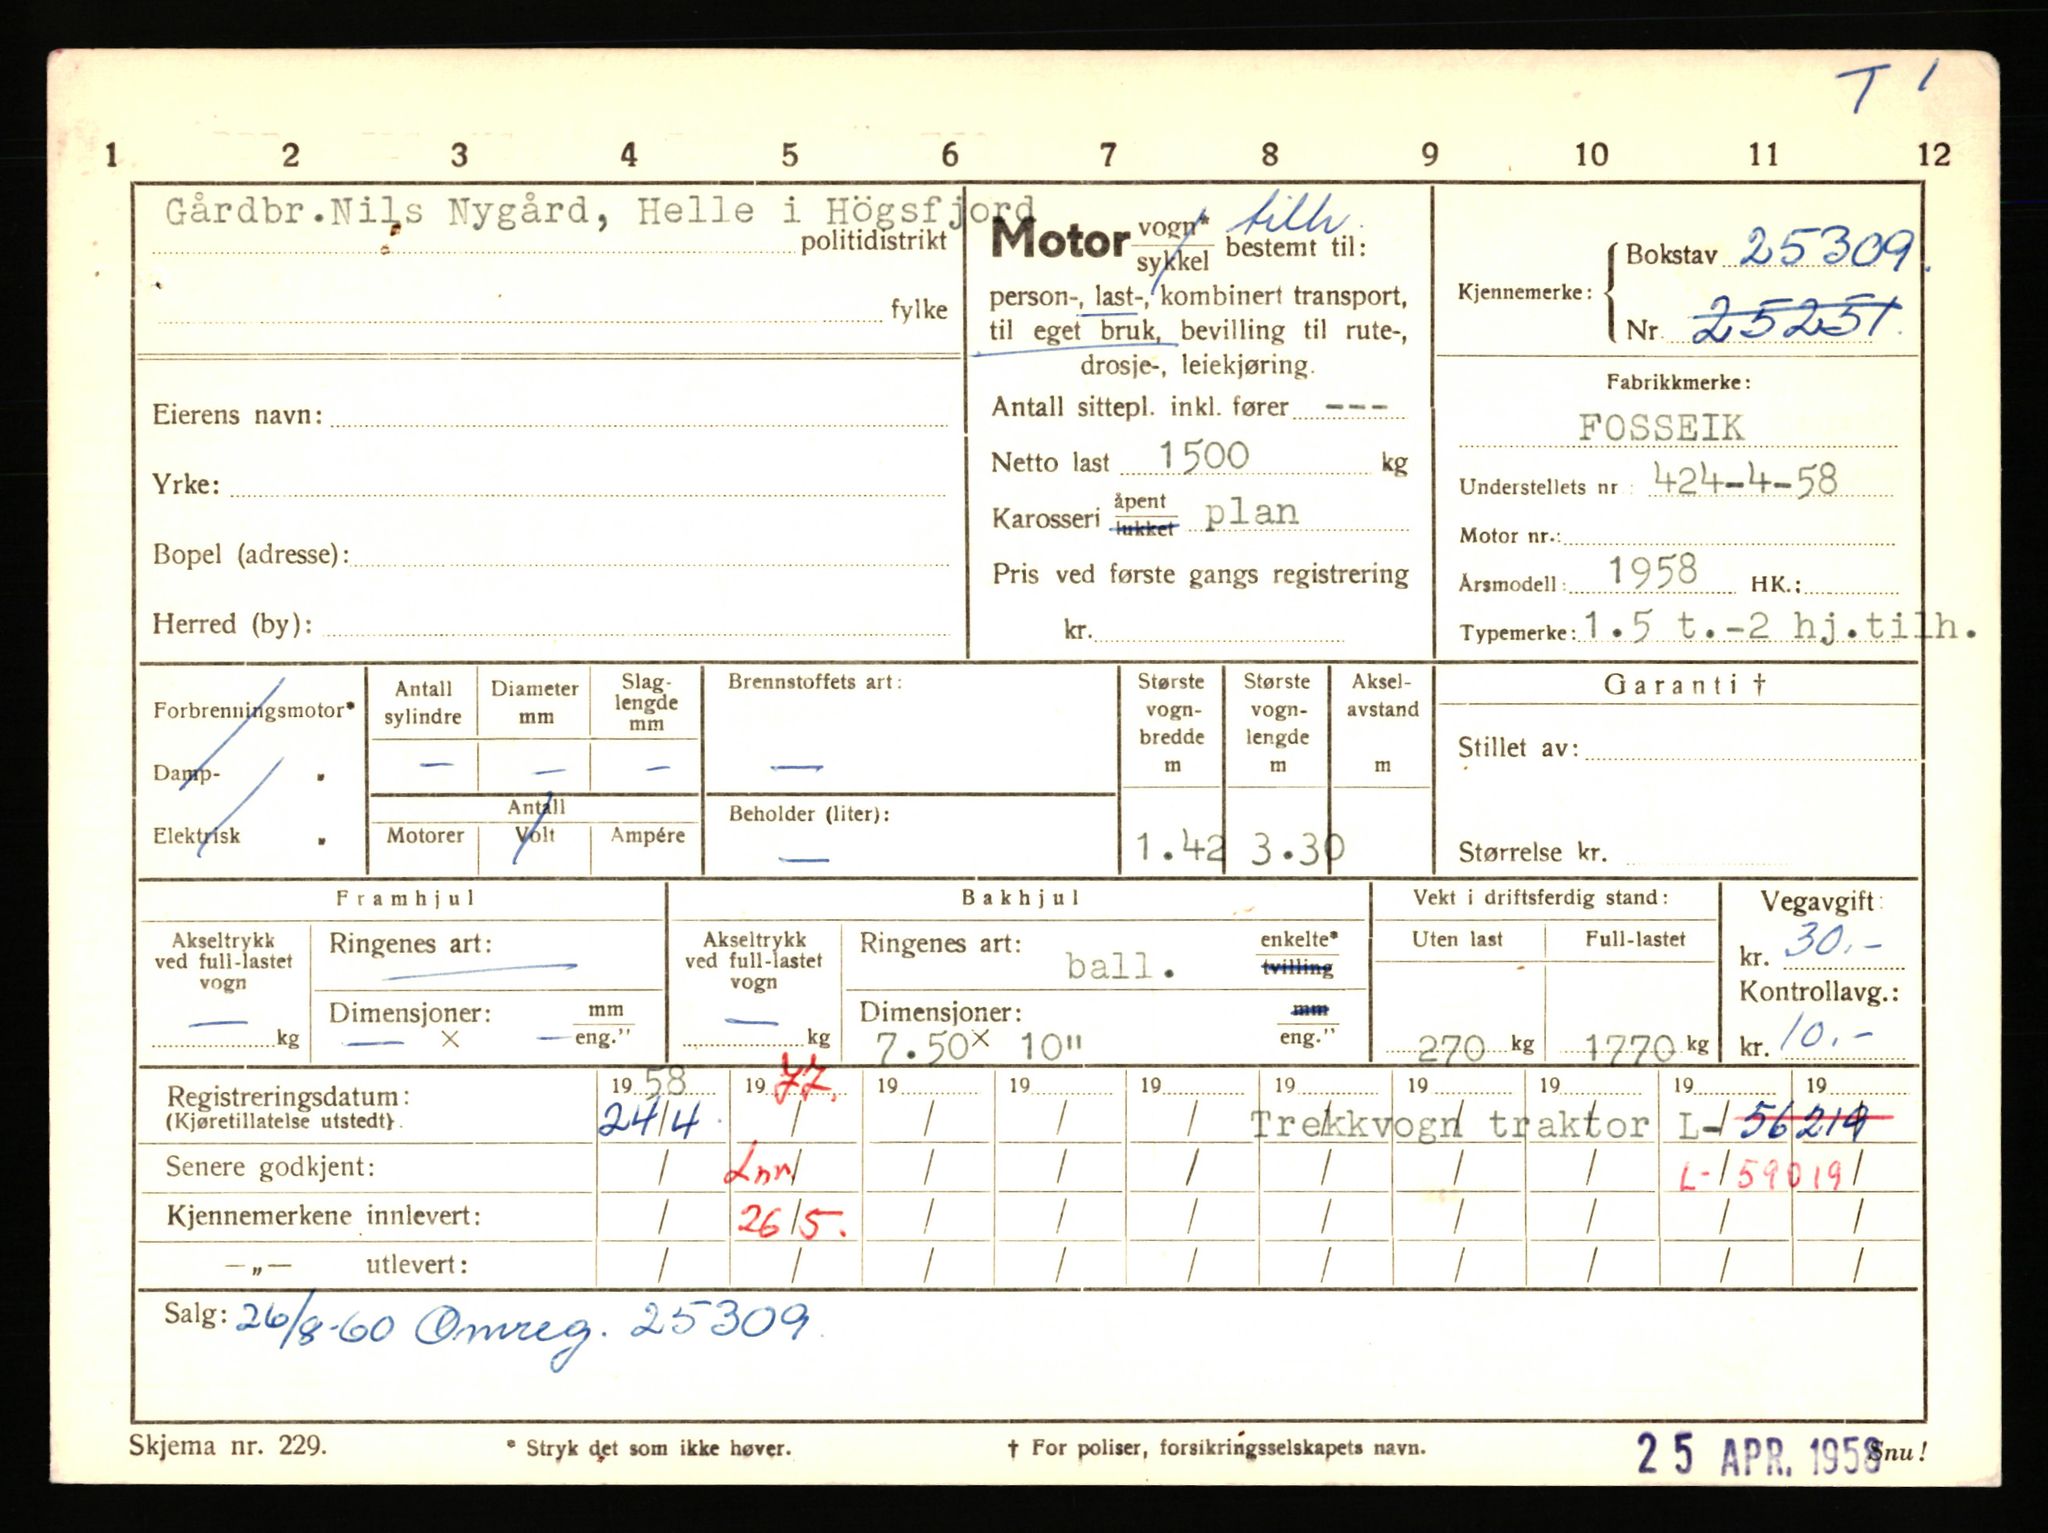 T 1
1 2 3 4 5 6 7 8 9 10 11 12
Gårdbr.Nils Nygård, Helle i Högsfjord
politidistrikt
fylke
Eierens navn:
Yrke:
Bopel (adresse):
Herred (by):
Motor vogn* / sykkel tilh. bestemt til:
person-, last-, kombinert transport,
til eget bruk, bevilling til rute-,
drosje-, leiekjøring.
Antall sittepl. inkl. fører ---
Netto last 1500 kg
Karosseri åpent / lukket plan
Pris ved første gangs registrering
kr.
Kjennemerke: Bokstav 25309.
Nr. 25251.
Fabrikkmerke:
FOSSEIK
Understellets nr: 424-4-58
Motor nr.:
Årsmodell: 1958 HK.:
Typemerke: 1.5 t.-2 hj.tilh.
Forbrenningsmotor*
Damp- "
Elektrisk "
Antall sylindre
Diameter mm
Slag-
lengde
mm
— — —
Antall
Motorer Volt Ampére
Brennstoffets art:
—
Beholder (liter):
—
Største
vogn-
bredde
m
1.42
Største
vogn-
lengde
m
3.30
Aksel-
avstand
m
Garanti †
Stillet av:
Størrelse kr.
Framhjul
Akseltrykk
ved full-lastet
vogn
— kg
Ringenes art: —
Dimensjoner: mm / eng."
— × —
Bakhjul
Akseltrykk
ved full-lastet
vogn
— kg
Ringenes art: ball. enkelte* / tvilling
Dimensjoner: mm / eng."
7.50 × 10"
Vekt i driftsferdig stand:
Uten last Full-lastet
270 kg 1770 kg
Vegavgift:
kr. 30.-
Kontrollavg.:
kr. 10.-
19 58 19 77. 19 19 19 19 19 19 19 19
Registreringsdatum:
(Kjøretillatelse utstedt). 24/4 / / / / Trekkvogn traktor L- 56214
Senere godkjent: / Lnn / / / / / / / L- 59019
Kjennemerkene innlevert: / 26/5. / / / / / / / /
—„— utlevert: / / / / / / / / / /
Salg: 26/8-60 Omreg. 25309
Skjema nr. 229.
* Stryk det som ikke høver.
† For poliser, forsikringsselskapets navn.
25 APR. 1958
Snu!